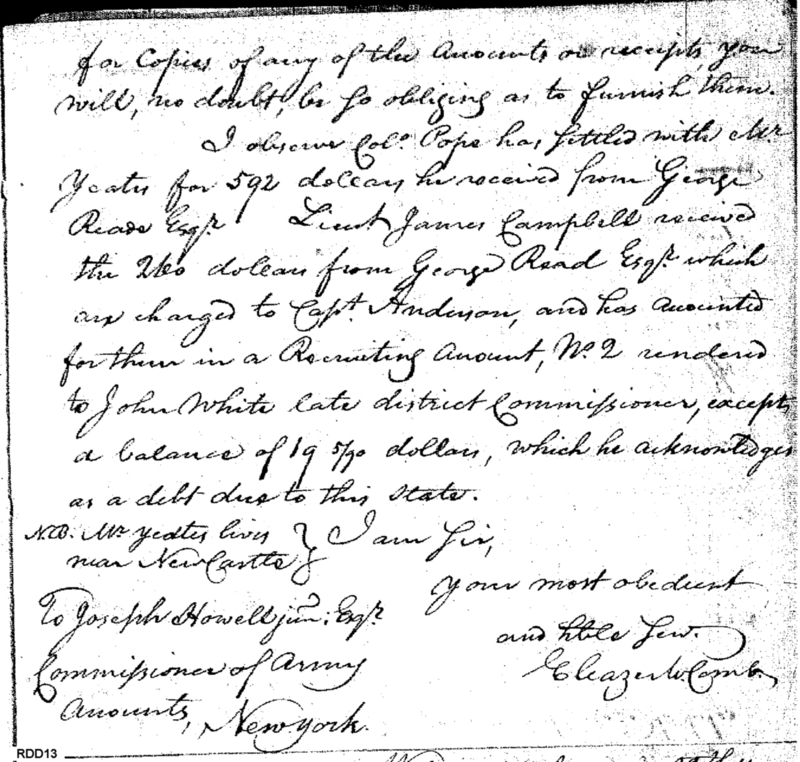 for Copies of any of the Accounts or receipts, you
will, no doubt, be so obliging as to furnish them.
I observe Colo. Pope has settled with Mr
Yeates for 592 dollars he received from George
Reade Esqr. Lieut James Campbell received
the 260 dollars from George Read Esqr. which
are charged to Capt. Anderson, and has accounted
for them in a Recruiting Account, No. 2 rendered
to John White late district Commissioner, excepts
a balance of 19 5/90 dollars, which he acknowledges
as a debt due to this State.
N.B. Mr Yeates lives } I am Sir,
near New Castle
your most obedient
To Joseph Howell junr. Esqr.
and hble Serv.
Commissioner of Army
Eleazer McComb
Accounts, New York.
RDD13